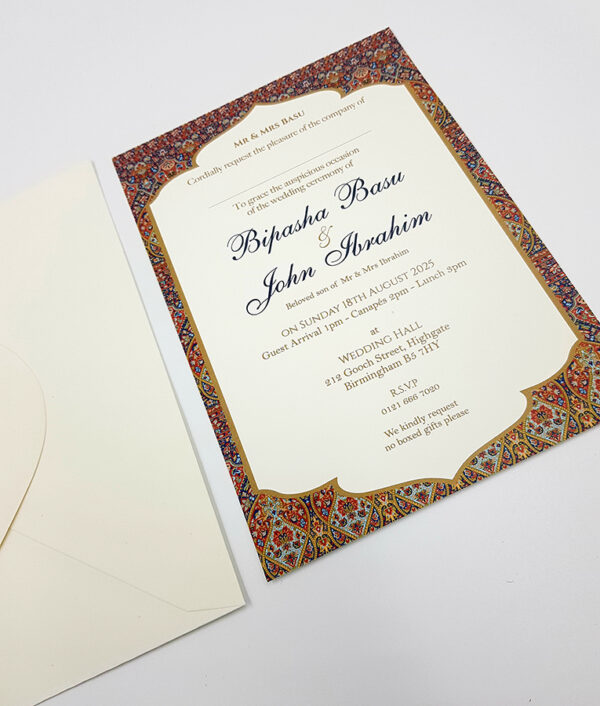 Mr & Mrs Basu
Cordially request the pleasure of the company of
To grace the auspicious occasion
of the wedding ceremony of
Bipasha Basu
&
John Ibrahim
Beloved son of Mr & Mrs Ibrahim
on Sunday 18th August 2025
Guest Arrival 1pm - Canapés 2pm - Lunch 3pm
at
Wedding Hall
212 Gooch Street, Highgate
Birmingham B5 7HY
R.S.V.P
0121 666 7020
We kindly request
no boxed gifts please